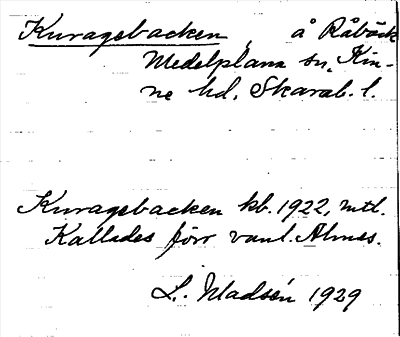 Kuragsbacken, å Råbäck
Medelplana sn, Kin-
ne hd. Skarab. l.
Kuragsbacken kb. 1922, mtl.
Kallades förr vanl. Almes.
L. Madsén 1929